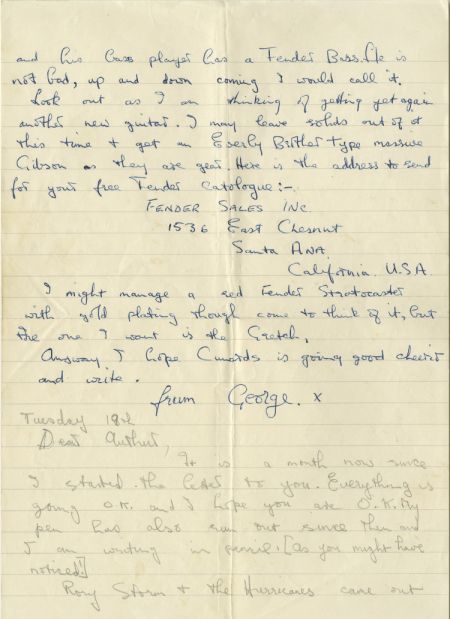 and his bass player has a Fender Bass. He is
not bad, up and down coming I would call it.
Look out as I am thinking of getting yet again
another new guitar. I may leave solids out of it
this time & get an Everly Brother type massive
Gibson as they are gear. Here is the address to send
for your free Fender Catologue:-
FENDER SALES INC.
1536 East Chesnut
Santa ANA.
California. U.S.A.
I might manage a red Fender Stratocaster
with gold plating though come to think of it, but
the one I want is the Gretch.
Anyway I hope Cunards is going good cheerio
and write.
from George. x
Tuesday 19th
Dear Arthur,
It is a month now since
I started the letter to you. Everything is
going O.K. and I hope you are O.K. My
pen has also ran out since then and
I am writing in pencil. [as you might have
noticed!]
Rory Storm & the Hurricanes came out